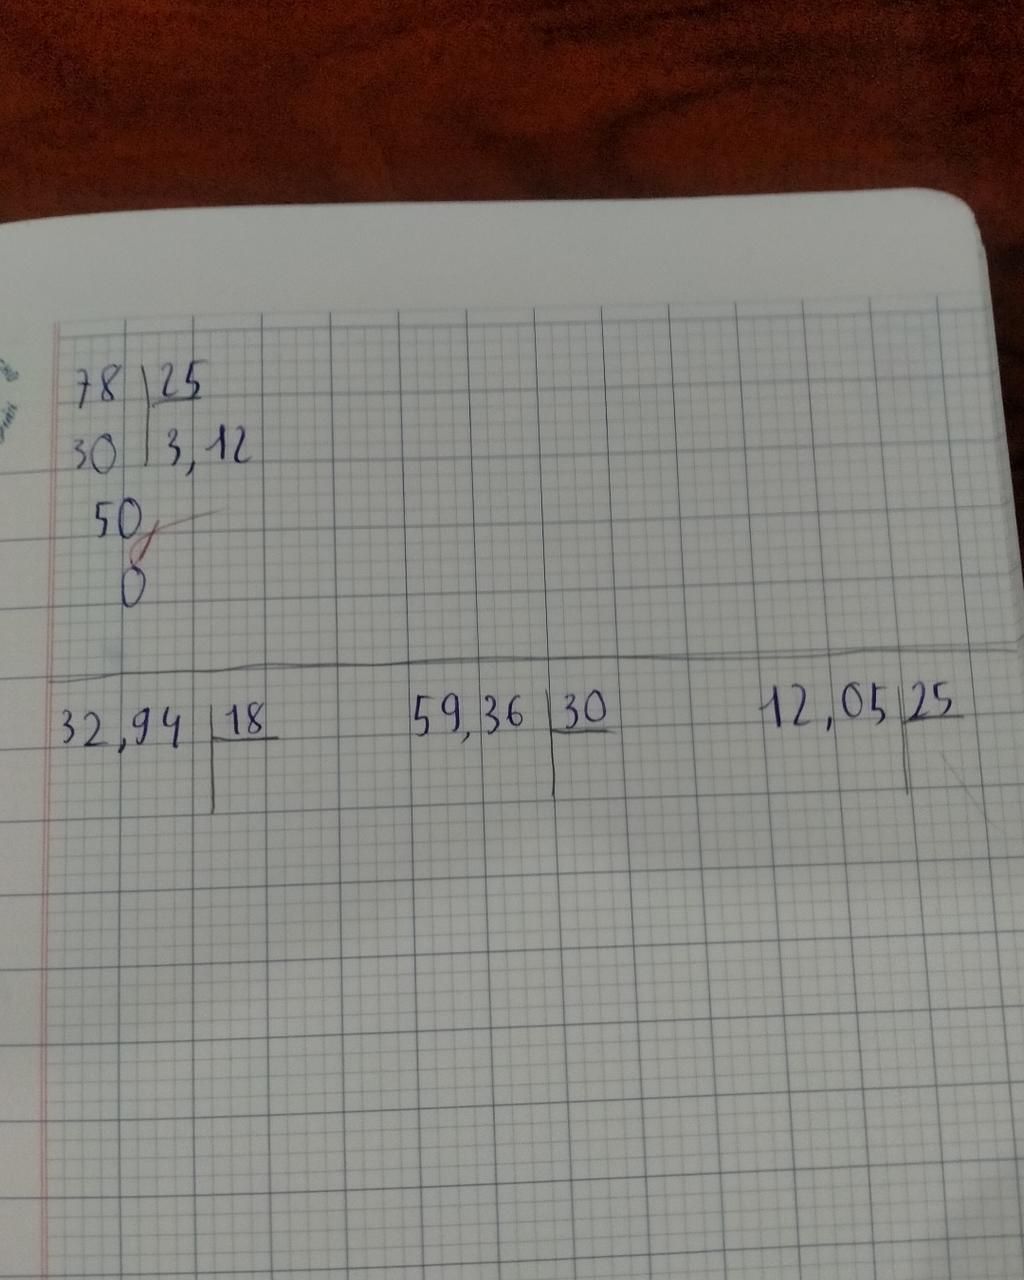 78 25
30 3,12
50
0
32,94 18 59,36 30 12,05 25